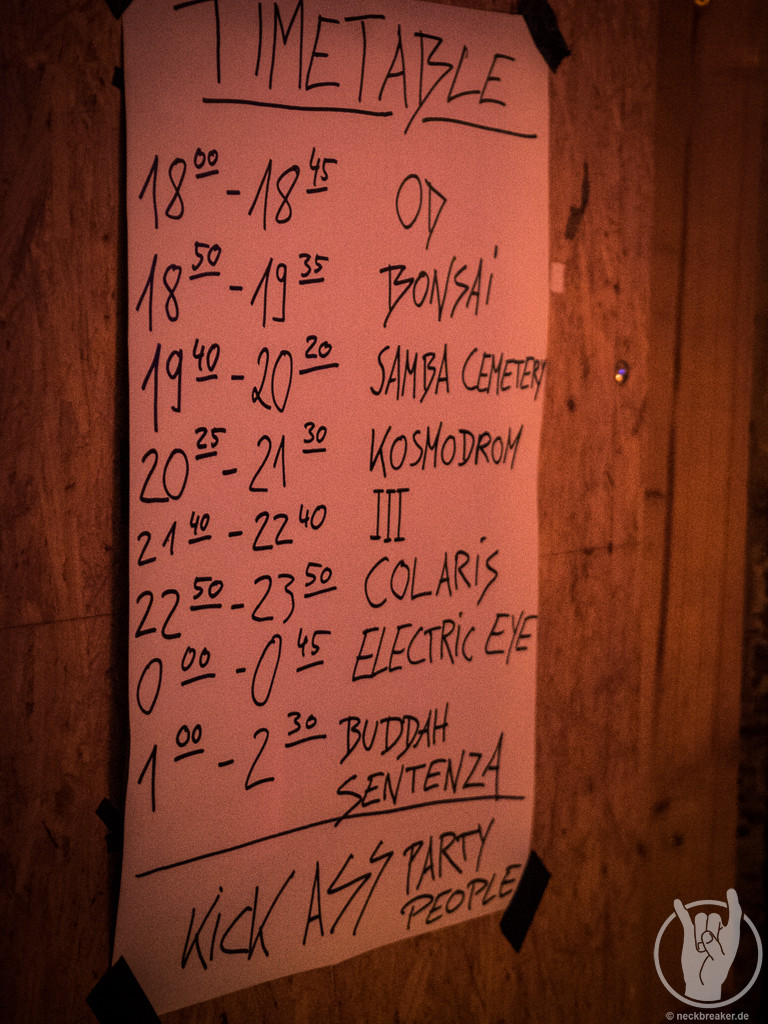 TIMETABLE
18 00 - 18 45 OD
18 50 - 19 35 BONSAI
19 40 - 20 20 SAMBA CEMETERY
20 25 - 21 30 KOSMODROM
21 40 - 22 40 III
22 50 - 23 50 COLARIS
0 00 - 0 45 ELECTRIC EYE
1 00 - 2 30 BUDDAH
SENTENZA
KICK ASS PARTY
PEOPLE
© neckbreaker.de